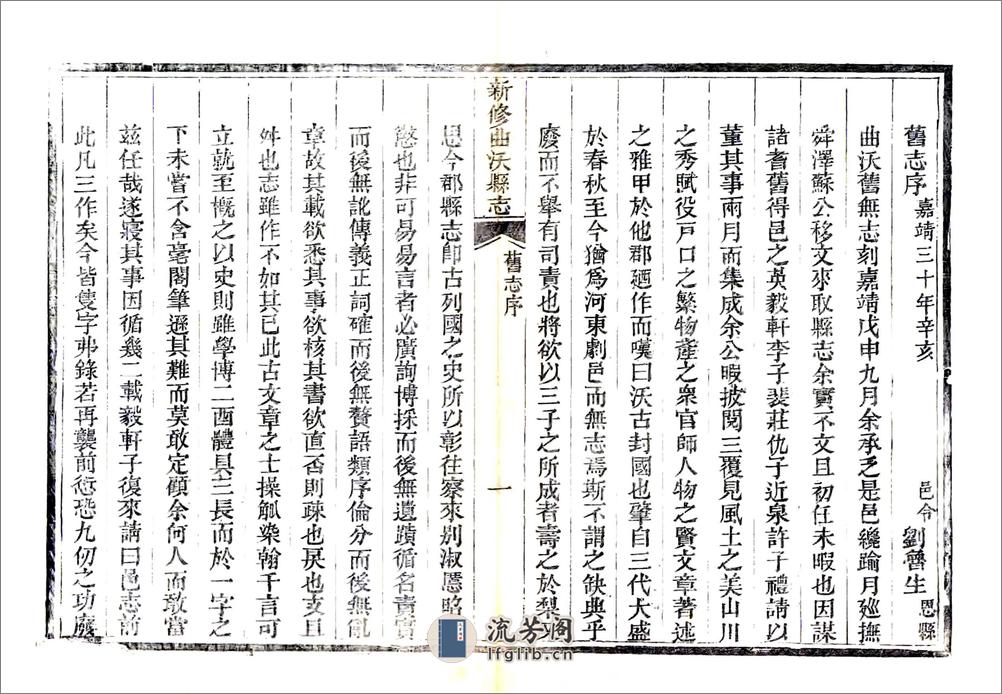 舊志序 嘉靖三十年辛亥 邑令 劉魯生 恩縣
曲沃舊無志刻嘉靖戊申九月余承乏是邑纔踰月廵撫
舜澤蘇公移文來取縣志余實不文且初任未暇也因謀
諸耆舊得邑之英毅軒李子裴莊仇子近泉許子禮請以
董其事兩月而集成余公暇披閱三覆見風土之美山川
之秀賦役戸口之繁物產之衆官師人物之賢文章著述
之雅甲於他郡廼作而嘆曰沃古封國也肇自三代大盛
於春秋至今猶爲河東劇邑而無志焉斯不謂之缺典乎
廢而不舉有司責也將欲以三子之所成者壽之於梨
新修曲沃縣志
舊志序
一
思今郡縣志卽古列國之史所以彰往察來别淑慝昭
懲也非可易易言者必廣詢博採而後無遺蹟循名責實
而後無訛傳義正詞確而後無贅語類序倫分而後無亂
章故其載欲悉其事欲核其書欲直否則疎也戾也支且
舛也志雖作不如其已此古文章之士操觚染翰千言可
立就至槪之以史則雖學博二酉體具三長而於一字之
下未嘗不含毫閣筆遜其難而莫敢定顧余何人而敢當
兹任哉遂寢其事因循幾二載毅軒子復來請曰邑志前
此凡三作矣今皆隻字弗錄若再襲前愆恐九仞之功廢
流芳阁
lfglib.cn